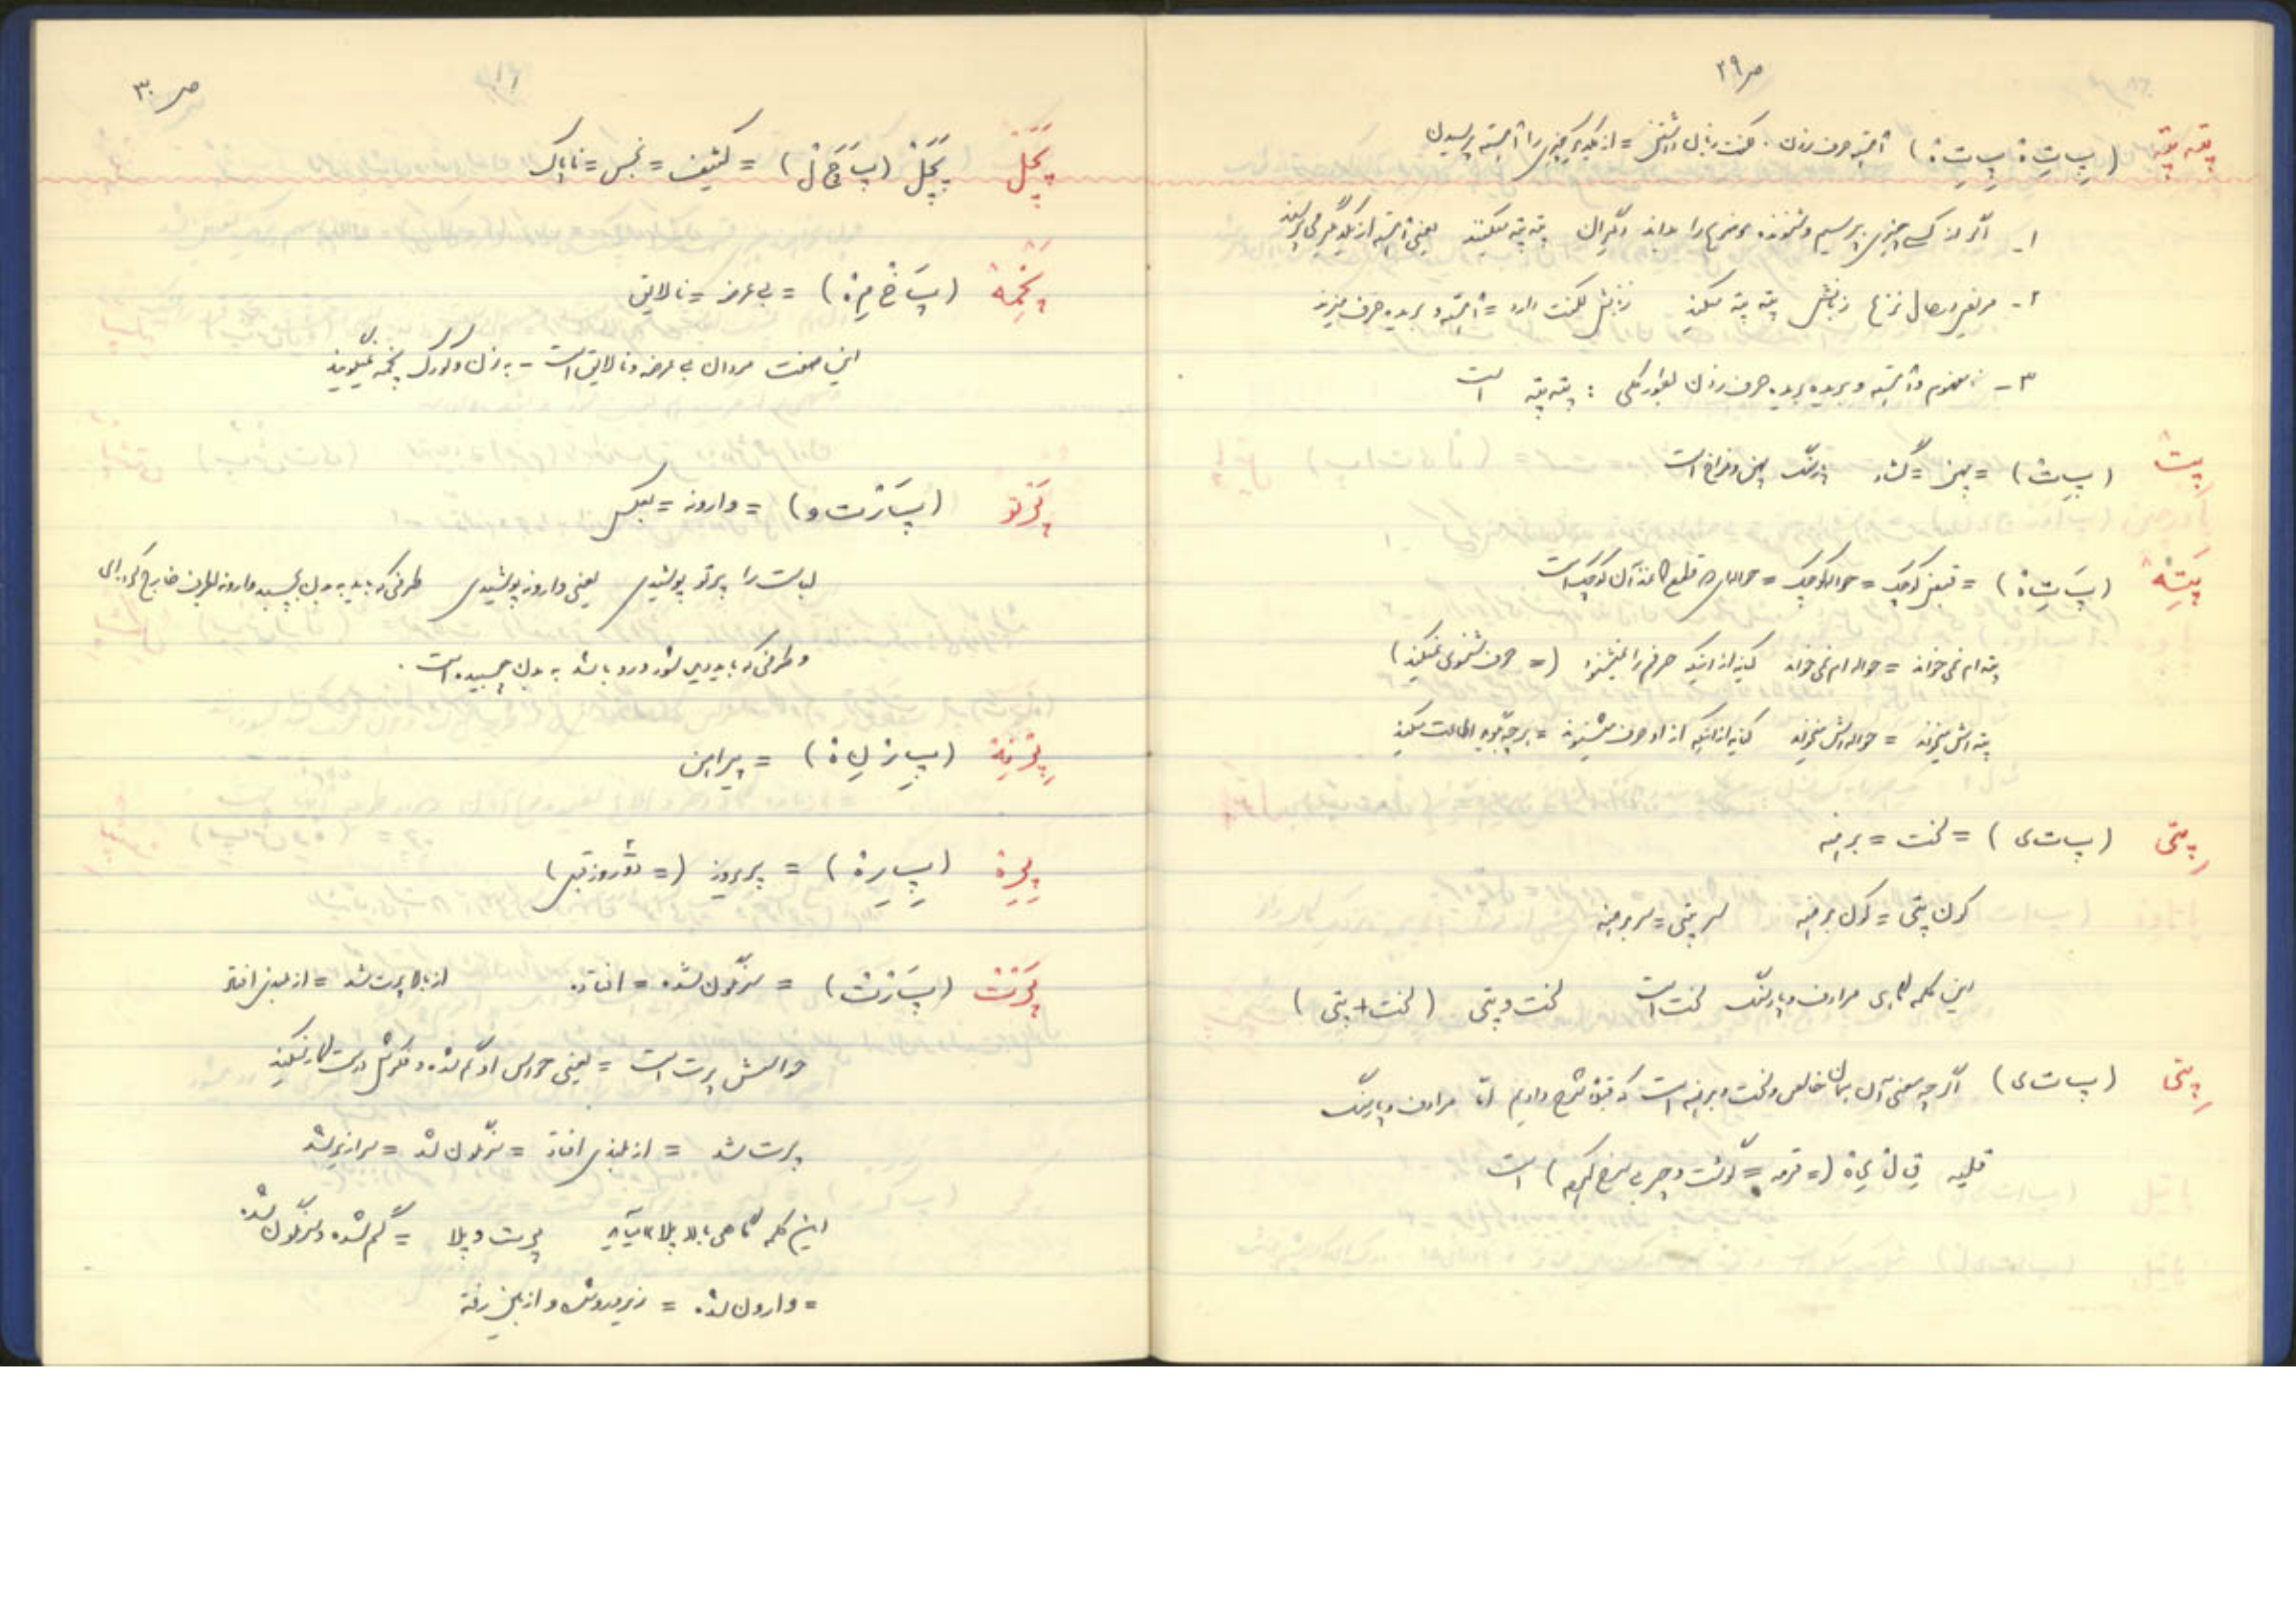 ص ۲۹
پته پته (پِ تِ ة پِ تِ ة) آهسته حرف زدن. لکنت زبان داشتن = از یکدیگر چیزی را آهسته پرسیدن
۱- اگر از کسی چیزی بپرسیم و شنونده موضوع را نداند دیگران پته پته میکنند یعنی آهسته از یکدیگر می پرسند
۲- مریض در حال نزع زبانش پته پته میکند زبانش لکنت دارد = آهسته و بریده حرف میزند
۳- نامفهوم و آهسته و بریده بریده حرف زدن بطور کلی : پته پته است
پِت (پِ ت) = پهن = گشاد پهن و فراخ است
پَتِه (پَ تِ ة) = قبض کوچک = حواله کوچک = حواله ای که قطع کاغذ آن کوچک است
پته ام نمی خواند = حواله ام نمی خواند کنایه از اینکه حرفم را نمیشنود (= حرف شنوی نمیکند)
پته اش میخواند = حواله اش میخواند کنایه از اینکه از او حرف میشنوند = هر چه بگوید اطاعت میکنند
پِتی (پ ت ی) = لخت = برهنه
کون پتی = کون برهنه سر پتی = سر برهنه
این کلمه گاهی مرادف و پارسنگ لخت است لخت و پتی (لخت + پتی)
پِتی (پ ت ی) اگر چه معنی آن همان خالص و لخت و برهنه است که قبلاً شرح دادیم اما مرادف و پارسنگ
قلیه ق ل ی ة (= قرمه = گوشت و چربی سرخ کرده) است
ص ۳۰
پَچَل پَچَلْ (پَ چَ لْ) = کثیف = نجس = ناپاک
پَخْمِه (پَ خْ مِ ة) = بی عرضه = نالایق
این صفت مردان بی عرضه و نالایق است - به زن و کودک پخمه نمیگویند
پَرتو (پَ رْ ت و) = وارونه = بعکس
لباست را پرتو پوشیدی یعنی وارونه پوشیدی طرفی که باید به بدن بچسبد وارونه بطرف خارج کرده ای
و طرفی که باید دیده شود و رو باشد به بدن چسبیده است.
(پِ رْ لِ ة) = پیراهن
پِرِة (پِ رِ ة) = پریروز (= دو روز قبل)
پَرْتْ (پَ رْ تْ) = سرنگون شده = افتاده از بالا پرت شد = از بلندی افتاد
حواسش پرت است = یعنی حواس او گم شده و فکرش درست کار نمیکند
پرت شد = از بلندی افتاد = سرنگون شد = سرازیر شد
این کلمه گاهی با «پلا» میآید پرت و پلا = گم شده و سرنگون شده
= وارون شده = زیر و رو شده و از بین رفته